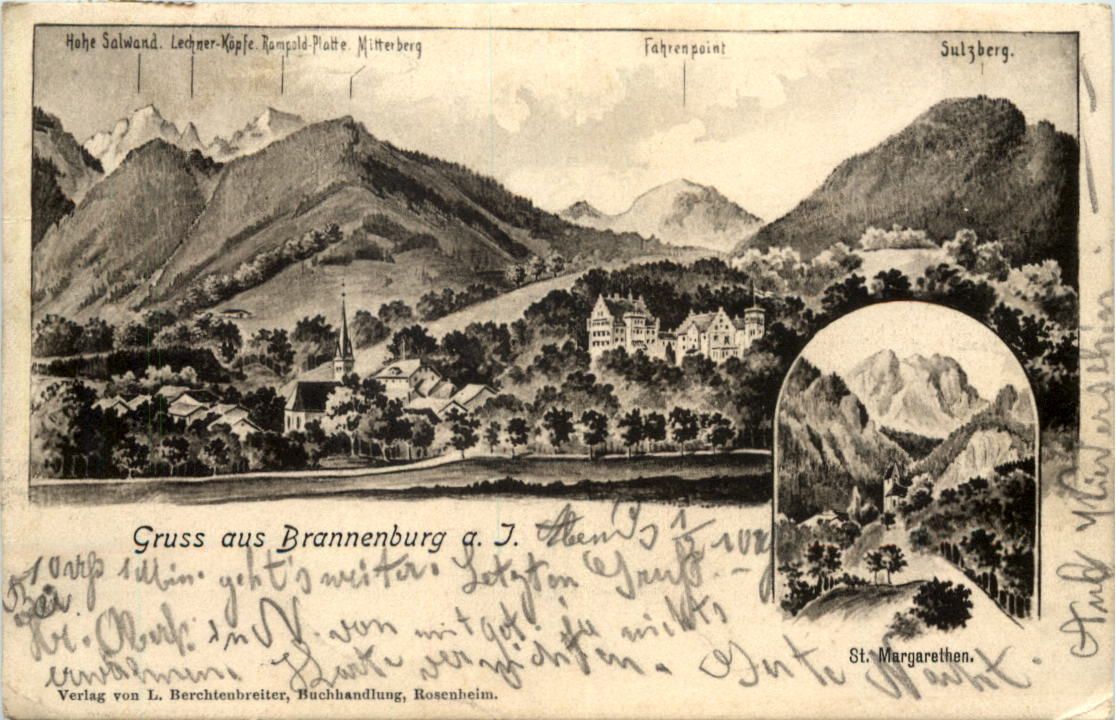 Hohe Salwand. Lechner-Köpfe. Rampold-Platte. Mitterberg Fahrenpoint Sulzberg.
Gruss aus Brannenburg a. I. Abends 1/2 10
geht's weiter. Letzten Gruß. –
von mit nichts
erwähnen. Karte vernichten. Gute Nacht.
St. Margarethen.
Verlag von L. Berchtenbreiter, Buchhandlung, Rosenheim.
Auf Wiedersehn